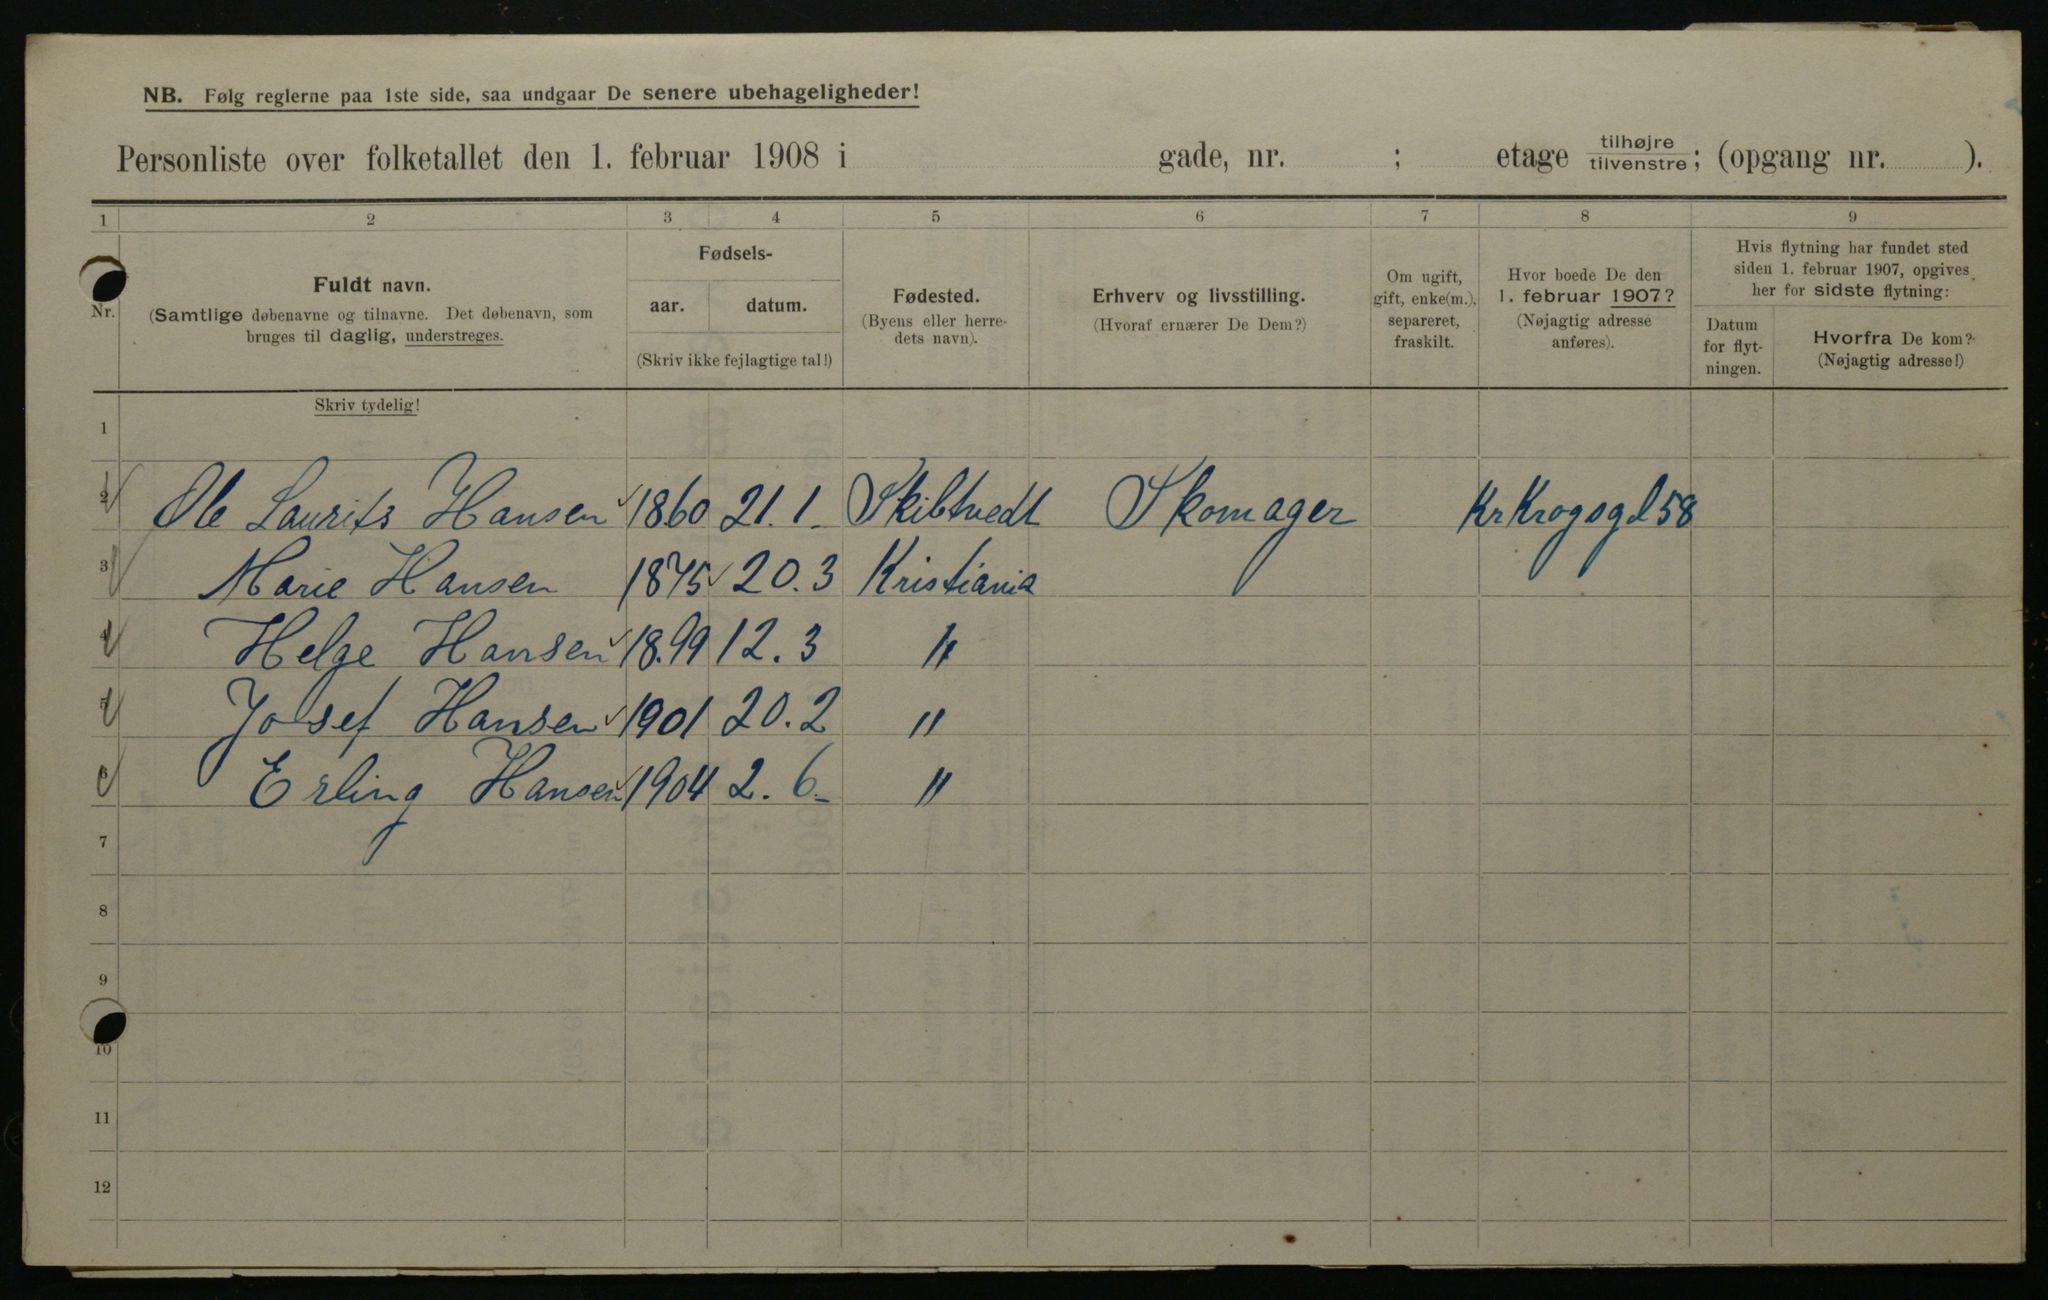 NB. Følg reglerne paa 1ste side, saa undgaar De senere ubehageligheder!
Personliste over folketallet den 1. februar 1908 i gade, nr. ; etage tilhøjre tilvenstre; (opgang nr. ).
1 2 3 4 5 6 7 8 9
Nr.
Fuldt navn.
(Samtlige døbenavne og tilnavne. Det døbenavn, som
bruges til daglig, understreges.
Fødsels-
aar. datum.
(Skriv ikke fejlagtige tal!)
Fødested.
(Byens eller herre-
dets navn).
Erhverv og livsstilling.
(Hvoraf ernærer De Dem?)
Om ugift,
gift, enke(m.),
separeret,
fraskilt.
Hvor boede De den
1. februar 1907?
(Nøjagtig adresse
anføres).
Hvis flytning har fundet sted
siden 1. februar 1907, opgives
her for sidste flytning:
Datum
for flyt-
ningen.
Hvorfra De kom?
(Nøjagtig adresse!)
Skriv tydelig!
1
2 Ole Laurits Hansen 1860 21.1. Skibtvedt Skomager Kr Krogsgd 58
3 Marie Hansen 1875 20.3 Kristiania
4 Helge Hansen 18.99 12.3 "
5 Josef Hansen 1901 20.2 "
6 Erling Hansen 1904 2.6. "
7
8
9
10
11
12